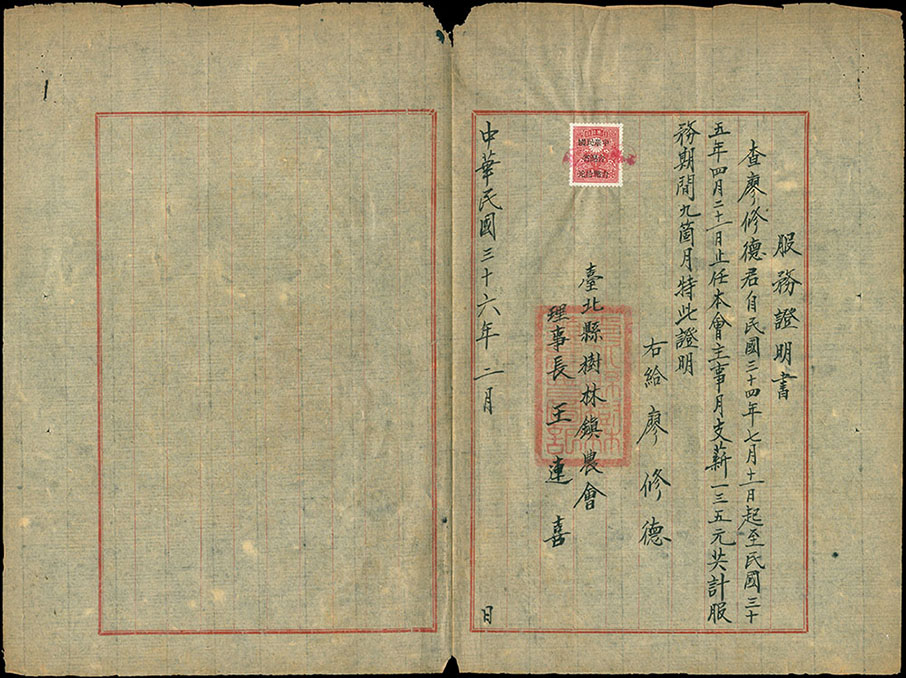 服務證明書
查廖修德君自民國三十四年七月十一日起至民國三十
五年四月二十一日止任本會主事月支薪一三五元共計服
務期間九箇月特此證明
右給 廖修德
中華民國
臺北縣樹林鎮農會
理事長 王連喜
中華民國三十六年二月 日